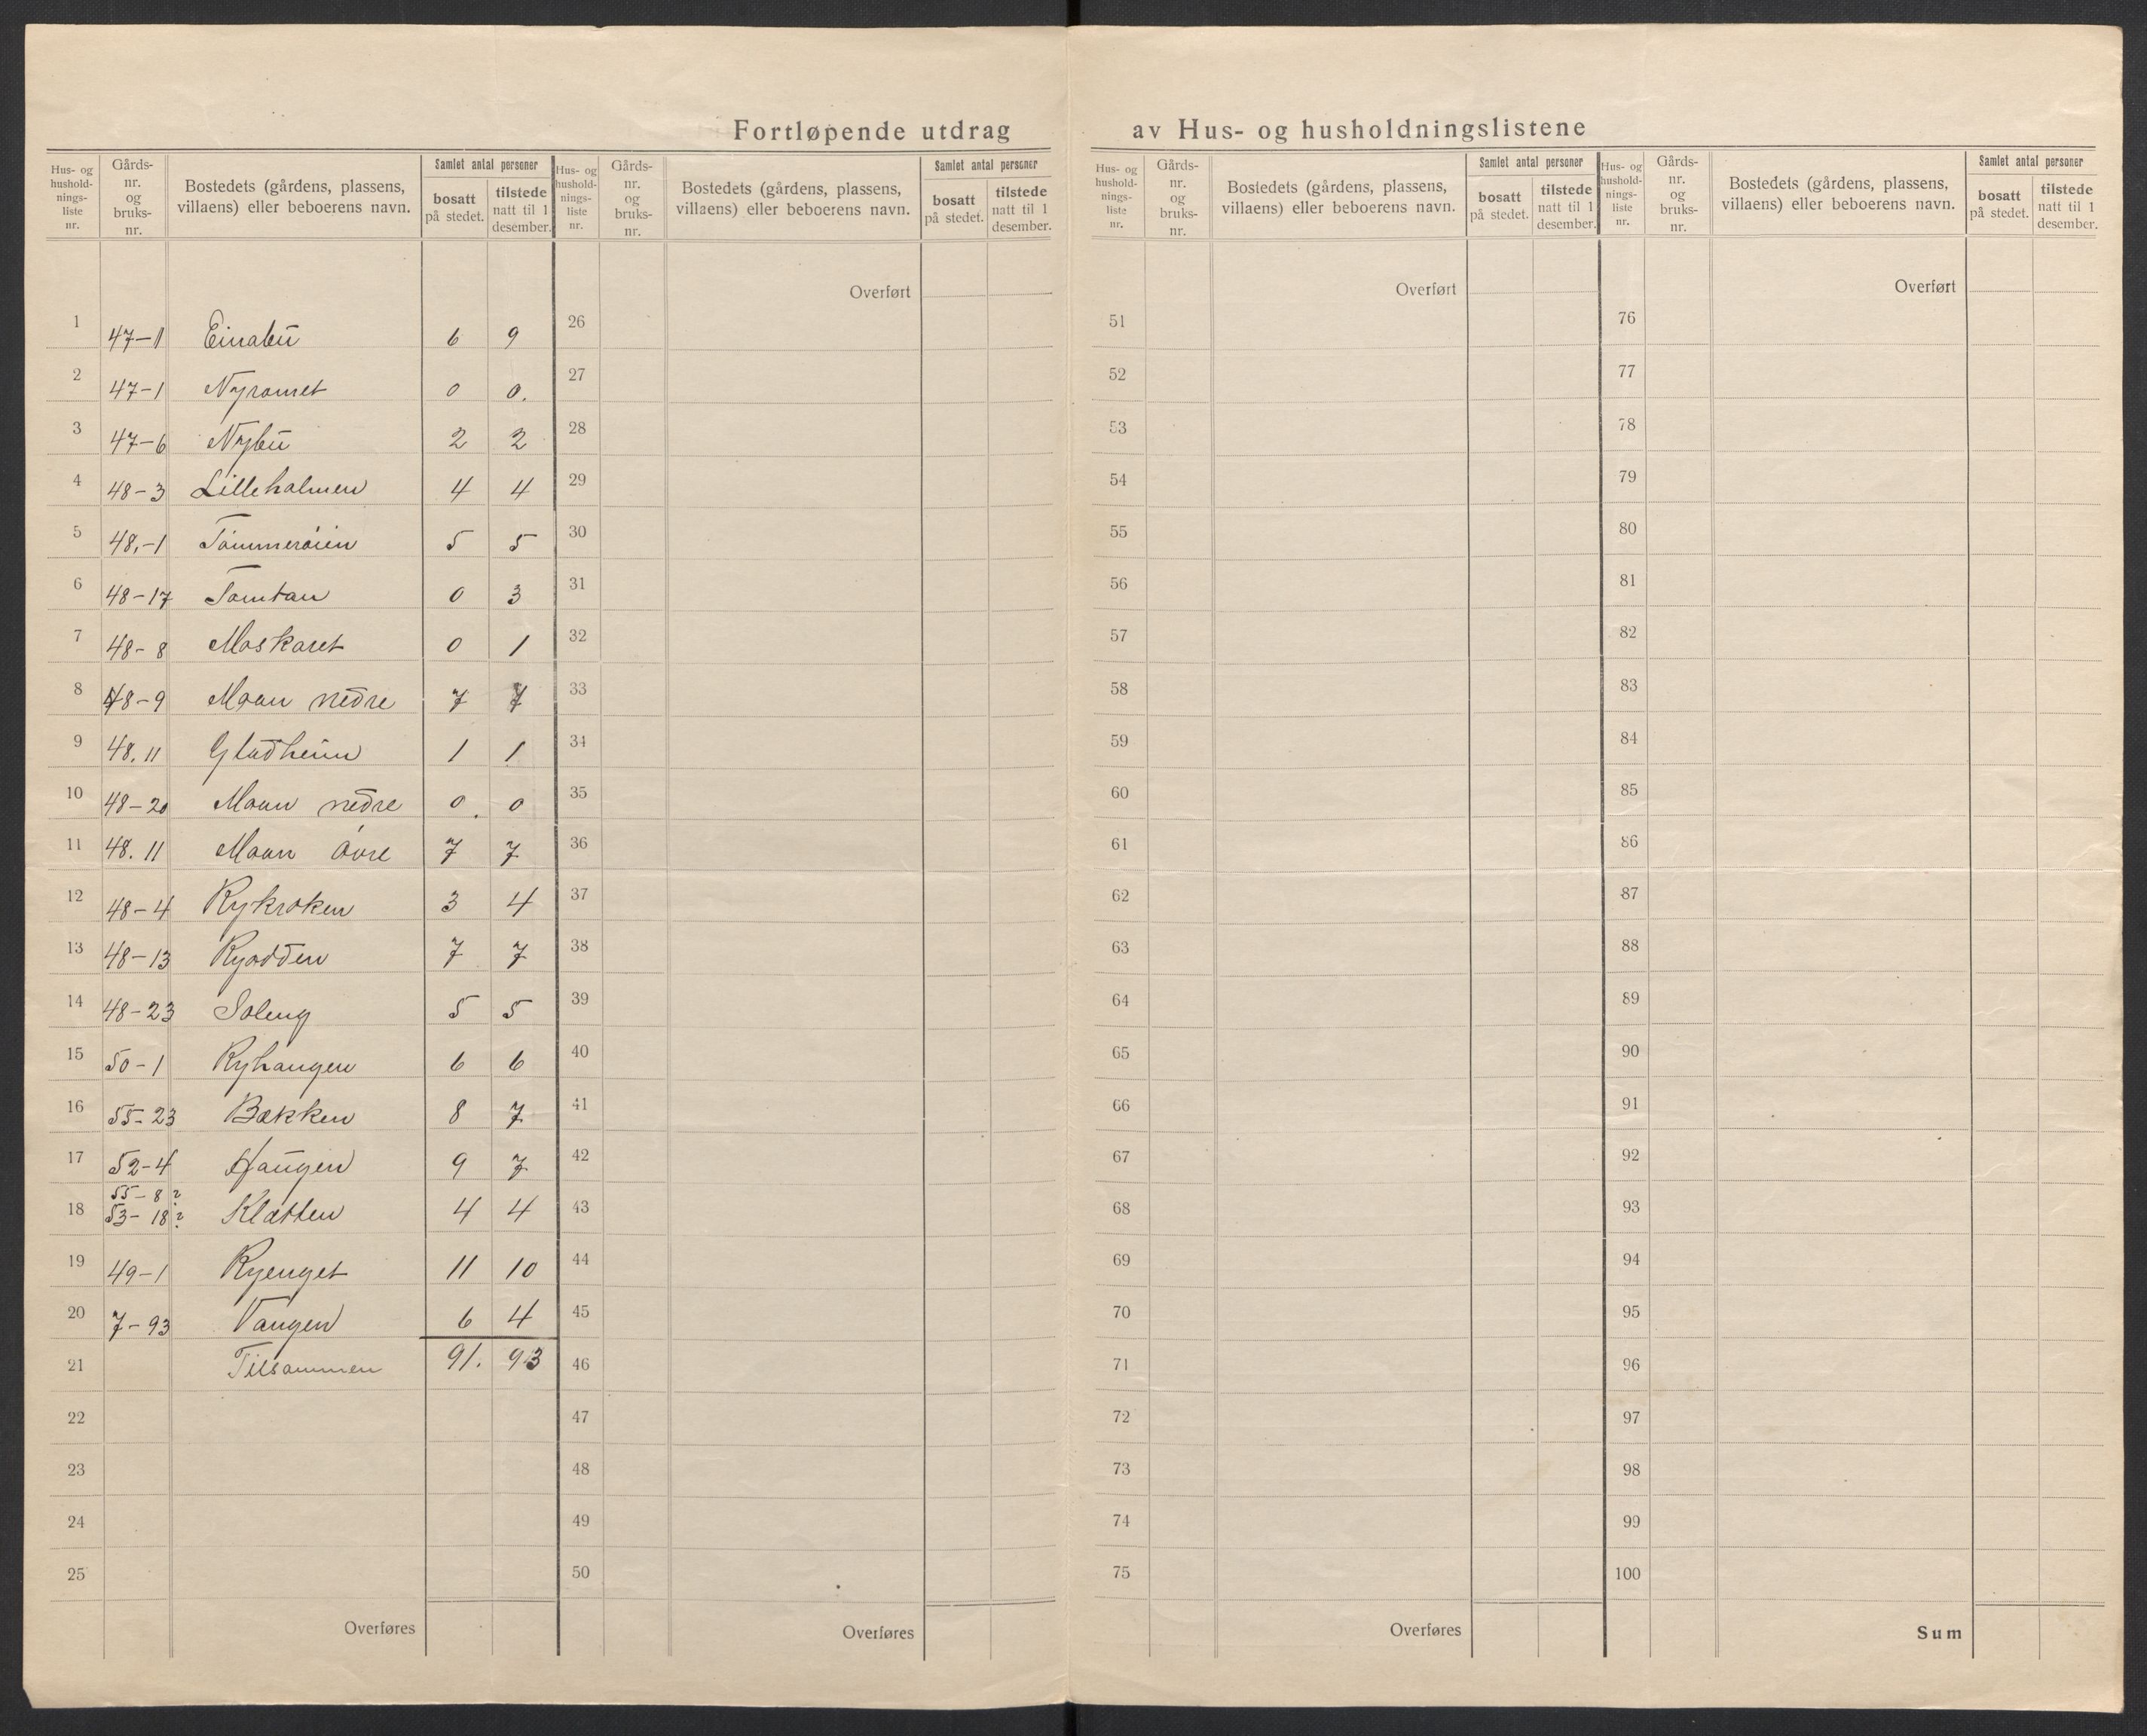 Fortløpende utdrag av Hus- og husholdningslistene
Hus- og hushold-nings-liste nr. | Gårds-nr. og bruks-nr. | Bostedets (gårdens, plassens, villaens) eller beboerens navn. | Samlet antal personer | bosatt på stedet. | tilstede natt til 1 desember.
1 47-1 Einabu 6 9
2 47-1 Nyromet 0 0.
3 47-6 Nybu 2 2
4 48-3 Lilleholmen 4 4
5 48,-1 Tömmeröien 5 5
6 48-17 Tomtan 0 3
7 48-8 Moskaret 0 1
8 48-9 Moan nedre 7 7
9 48.11 Gladheim 1 1
10 48-20 Moan nedre 0. 0
11 48.11 Moan övre 7 7
12 48-4 Rykroken 3 4
13 48-13 Ryodden 7 7
14 48-23 Soleng 5 5
15 50-1 Ryhaugen 6 6
16 55-23 Bækken 8 7
17 52-4 Haugen 9 7
55-8?
18 53-18? Klætten 4 4
19 49-1 Ryenget 11 10
20 7-93 Vangen 6 4
21 Tilsammen 91. 93
22
23
24
25
Overføres
Hus- og hushold-nings-liste nr. | Gårds-nr. og bruks-nr. | Bostedets (gårdens, plassens, villaens) eller beboerens navn. | Samlet antal personer | bosatt på stedet. | tilstede natt til 1 desember.
Overført
26
27
28
29
30
31
32
33
34
35
36
37
38
39
40
41
42
43
44
45
46
47
48
49
50
Overføres
Hus- og hushold-nings-liste nr. | Gårds-nr. og bruks-nr. | Bostedets (gårdens, plassens, villaens) eller beboerens navn. | Samlet antal personer | bosatt på stedet. | tilstede natt til 1 desember.
Overført
51
52
53
54
55
56
57
58
59
60
61
62
63
64
65
66
67
68
69
70
71
72
73
74
75
Overføres
Hus- og hushold-nings-liste nr. | Gårds-nr. og bruks-nr. | Bostedets (gårdens, plassens, villaens) eller beboerens navn. | Samlet antal personer | bosatt på stedet. | tilstede natt til 1 desember.
Overført
76
77
78
79
80
81
82
83
84
85
86
87
88
89
90
91
92
93
94
95
96
97
98
99
100
Sum